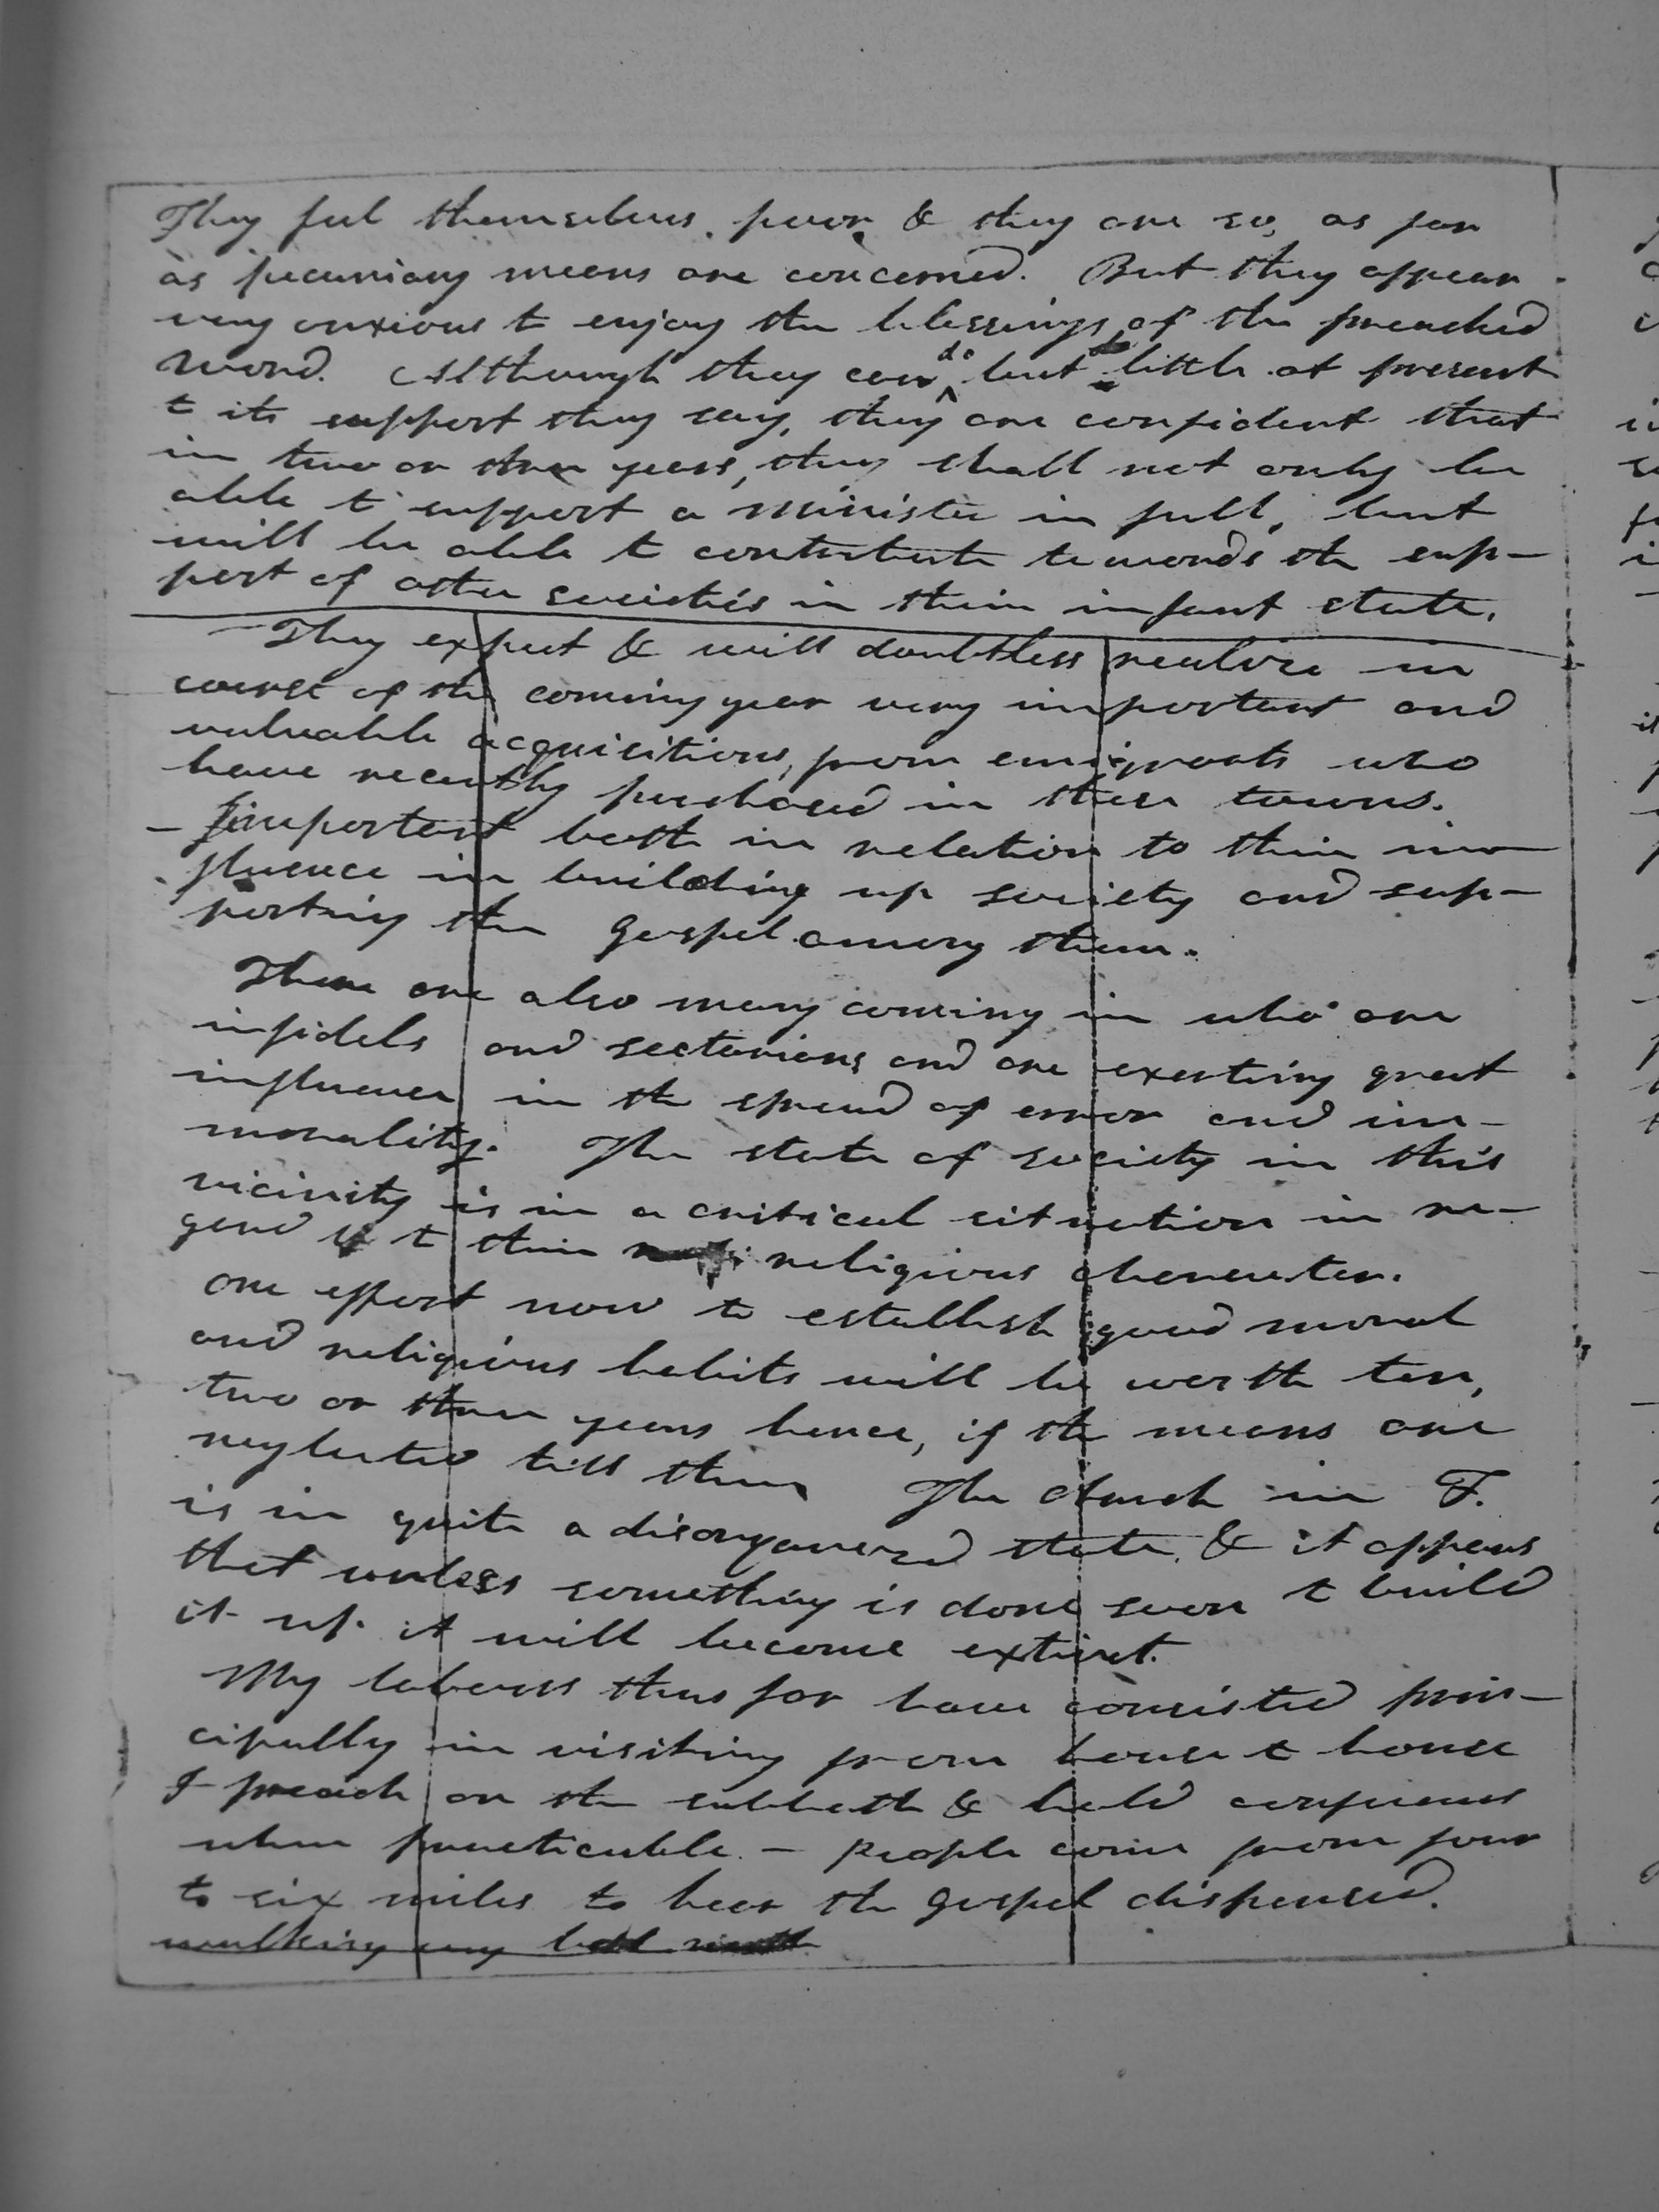 They feel themselves poor & they are so, as far
as pecuniary means are concerned. But they appear
very anxious to enjoy the blessings of the preached
word. Although they can do but little at present
to its support they say, they are confident that
in two or three years, they shall not only be
able to support a minister in full, but
will be able to contribute towards the sup-
port of other societies in their infant state.
They expect & will doubtless realise in
course of the coming year very important and
valuable acquisitions, from emigrants who
have recently purchased in these towns.
– Important both in relation to their in-
fluence in building up society and sup-
porting the Gospel among them.
There are also many coming in who are
infidels and sectarians and are exerting great
influence in the spread of error and im-
morality. The state of society in this
vicinity is in a critical situation in re-
gard to their religious character.
One effort now to establish good moral
and religious habits will be worth ten,
two or three years hence, if the means are
neglected till then The church in F.
is in quite a disorganized state & it appears
that unless something is done soon to build
it up it will become extinct.
My labours thus far have consisted prin-
cipally in visiting from house to house
I preach on the sabbath & hold conferences
when practicable. – People come from four
to six miles to hear the Gospel dispensed.
walking